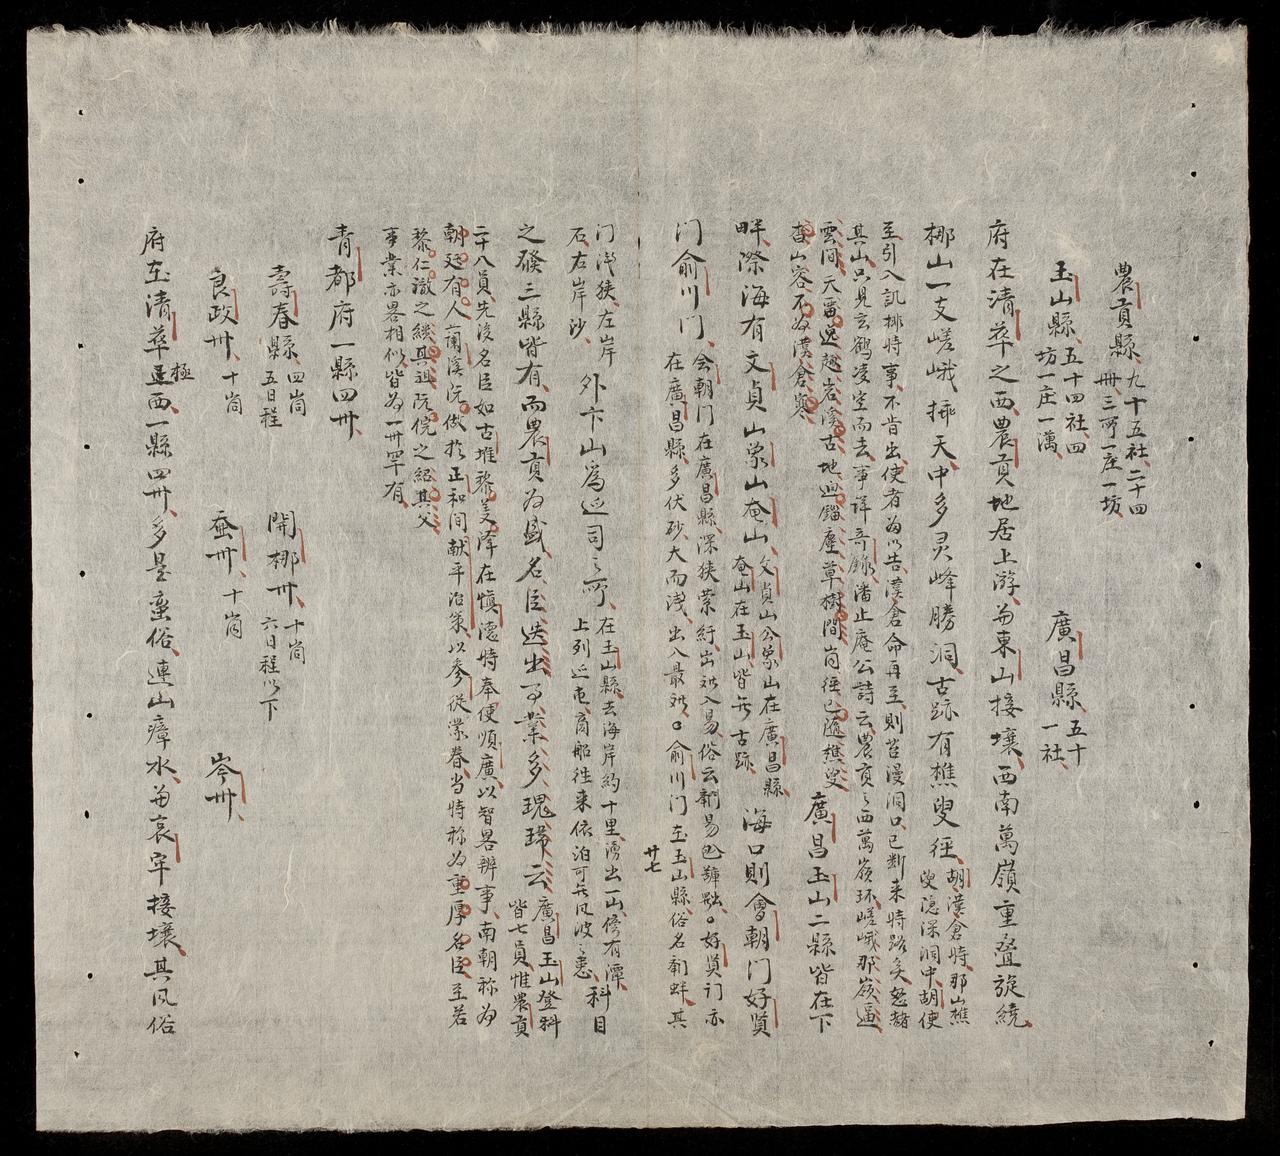 農貢縣九十五社二十四
卅三所一庄一坊
玉山縣五十四社四
坊一庄一萬
廣昌縣五十
一社
府在清華之西農貢地居上游與東山接壤西南萬嶺重疊旋繞
梛山一支嵯峨揷天中多灵峰勝洞古跡有樵叟徑胡漢倉時那山樵
叟隐深洞中胡使
至引入訊排時事不肯出使者為以告漢倉命再至則苔漫洞口已断来時路矣怒赭
其山只見玄鶴凌空而去事詳奇錄潘止庵公詩云農貢之西萬嶺环嵯峨那嶺逼
雲间天畱逸趣岩溪古地出錙塵草樹間岗徑已隨樵叟
杳山容不為漢倉寒
廣昌玉山二縣皆在下
畔際海有文貞山象山奄山文貞山会象山在廣昌縣
奄山在玉山皆旡古跡
海口則會朝门好賢
门俞川门会朝门在廣昌縣深狹縈紆出
入易俗云
好賢门亦
在廣昌縣多伏砂大而浅出入最
俞川门在玉山縣俗名
其
廿七
门浅狹左岸
石右岸沙
外卞山為巡司之所在玉山縣去海岸約十里湧出一山傍有潭
上列巡屯商船往来依泊可旡风波之患
科目
之發三縣皆有而農貢為盛名臣迭出事業多瑰瑋云廣昌玉山登科
皆七員惟農貢
二十八員先後名臣如古堆黎
美淳在愼德時奉使順廣以智畧辨事南朝称為
朝廷有人蘭溪阮傚於正和间献平治策以參從業眷当時称為重厚名臣至若
黎仁
之継其祖阮
之紹其父
事業亦畧相似皆為一卅罕有
青都府一縣四卅
壽春縣四峝
五日程
開梛卅十峝
六日程以下
良政卅十峝
蚕卅十峝
岑卅
府在清華極西一縣四卅多是蛮俗連山瘴水與哀牢接壤其风俗